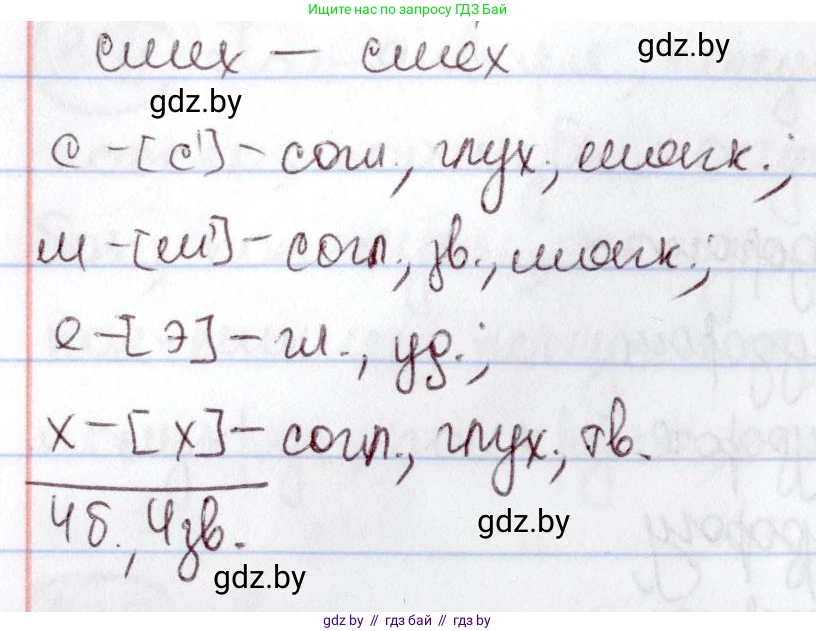 Ищите нас по запросу ГДЗ Бай
смех – сме́х
gdz.by
gdz.by
с – [с'] – согл., глух., мягк.;
м – [м'] – согл., зв., мягк.;
е – [э] – гл., уд.;
х – [х] – согл., глух., тв.
4 б., 4 зв.
gdz.by
gdz.by
gdz.by // гдз бай // гдз by